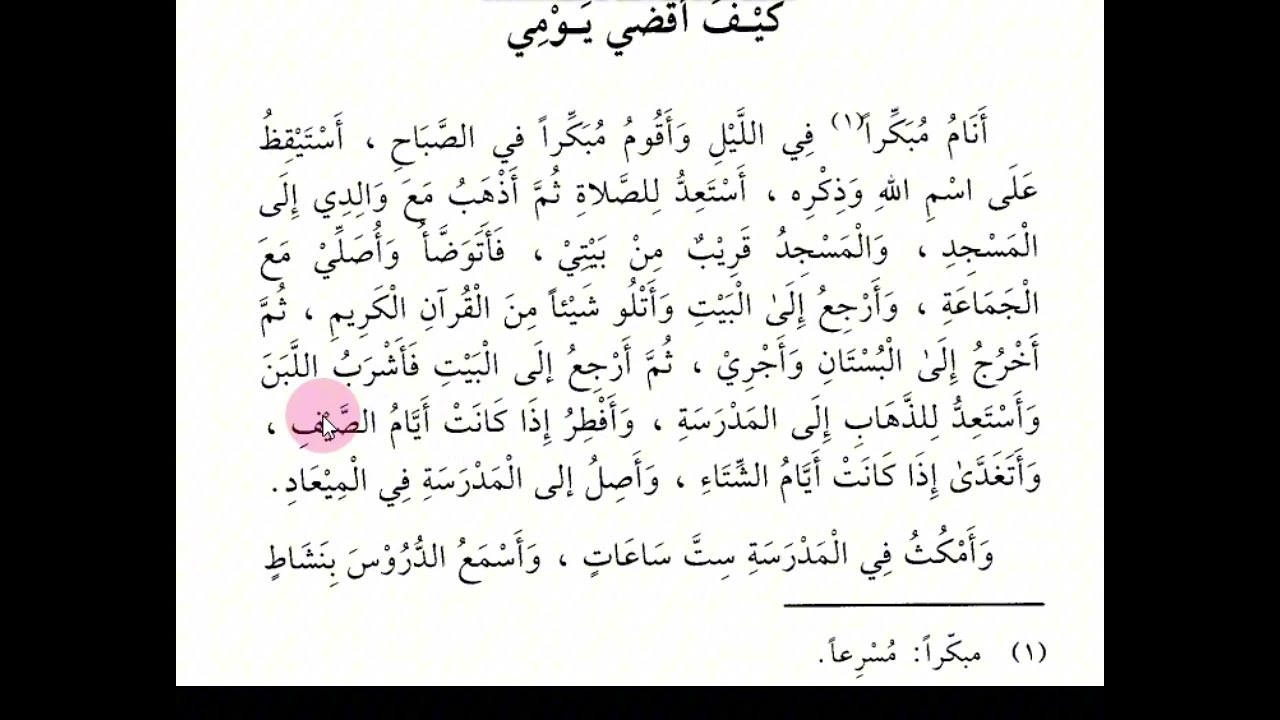 كَيْفَ أَقْضي يَوْمِي
أَنَامُ مُبَكِّراً(١) فِي اللَّيْلِ وَأَقُومُ مُبَكِّراً في الصَّبَاحِ ، أَسْتَيْقِظُ
عَلَى اسْمِ اللهِ وَذِكْرِه ، أَسْتَعِدُّ لِلصَّلاةِ ثُمَّ أَذْهَبُ مَعَ وَالِدِي إِلَى
الْمَسْجِدِ ، وَالْمَسْجِدُ قَرِيْبٌ مِنْ بَيْتِيْ ، فَأَتَوَضَّأُ وَأُصَلِّيْ مَعَ
الْجَمَاعَةِ ، وَأَرْجِعُ إِلَىٰ الْبَيْتِ وَأَتْلُو شَيْئاً مِنَ الْقُرآنِ الْكَرِيمِ ، ثُمَّ
أَخْرُجُ إِلَىٰ الْبُسْتَانِ وَأَجْرِيْ ، ثُمَّ أَرْجِعُ إلَى الْبَيْتِ فَأَشْرَبُ اللَّبَنَ
وَأَسْتَعِدُّ لِلذَّهَابِ إِلَى المَدْرَسَةِ ، وَأَفْطِرُ إِذَا كَانَتْ أَيَّامُ الصَّيْفِ ،
وَأَتَغَدَّىٰ إِذَا كَانَتْ أَيَّامُ الشِّتَاءِ ، وَأَصِلُ إلى الْمَدْرَسَةِ فِي الْمِيْعَادِ.
وَأَمْكُثُ فِي الْمَدْرَسَةِ سِتَّ سَاعَاتٍ ، وَأَسْمَعُ الدُّرُوْسَ بِنَشَاطٍ
(١) مبكّراً: مُسْرِعاً.